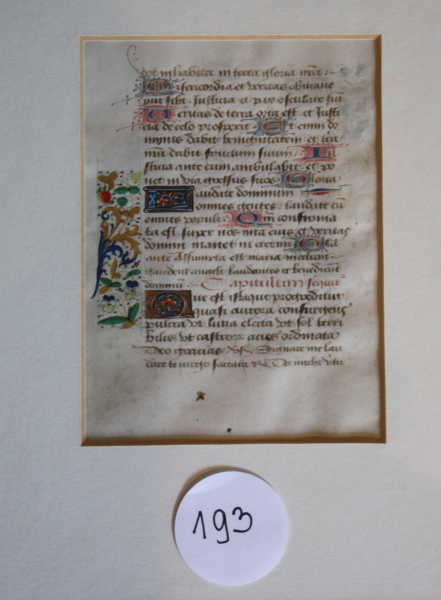 bot inhabitet in terra gloria nra
Misericordia et veritas obviave
runt sibi Justicia et pax osculate sut
Veritas de terra orta est et Justi
cia de celo prosperit Et enim do
minus dabit benignitatem et tra
nra dabit fructum suum Ju
sticia ante eum ambulabit et po
net in via gressus suos Gloria
Laudate dominum
omnes gentes laudate eu
omnes populi Qm confirma
ta est super nos mia eius et veritas
domini manet in eternu Gla
ante Assumpta est maria in celum
gaudent angeli laudantes et benedicunt
dominu Capitulum
Que est ista que progreditur
quasi aurora consurgens
pulcra ut luna electa ut sol terri
bilis ut castrorum acies ordinata
Deo gracias Dignare me lau
dare te virgo sacrata Da michi vtu
193